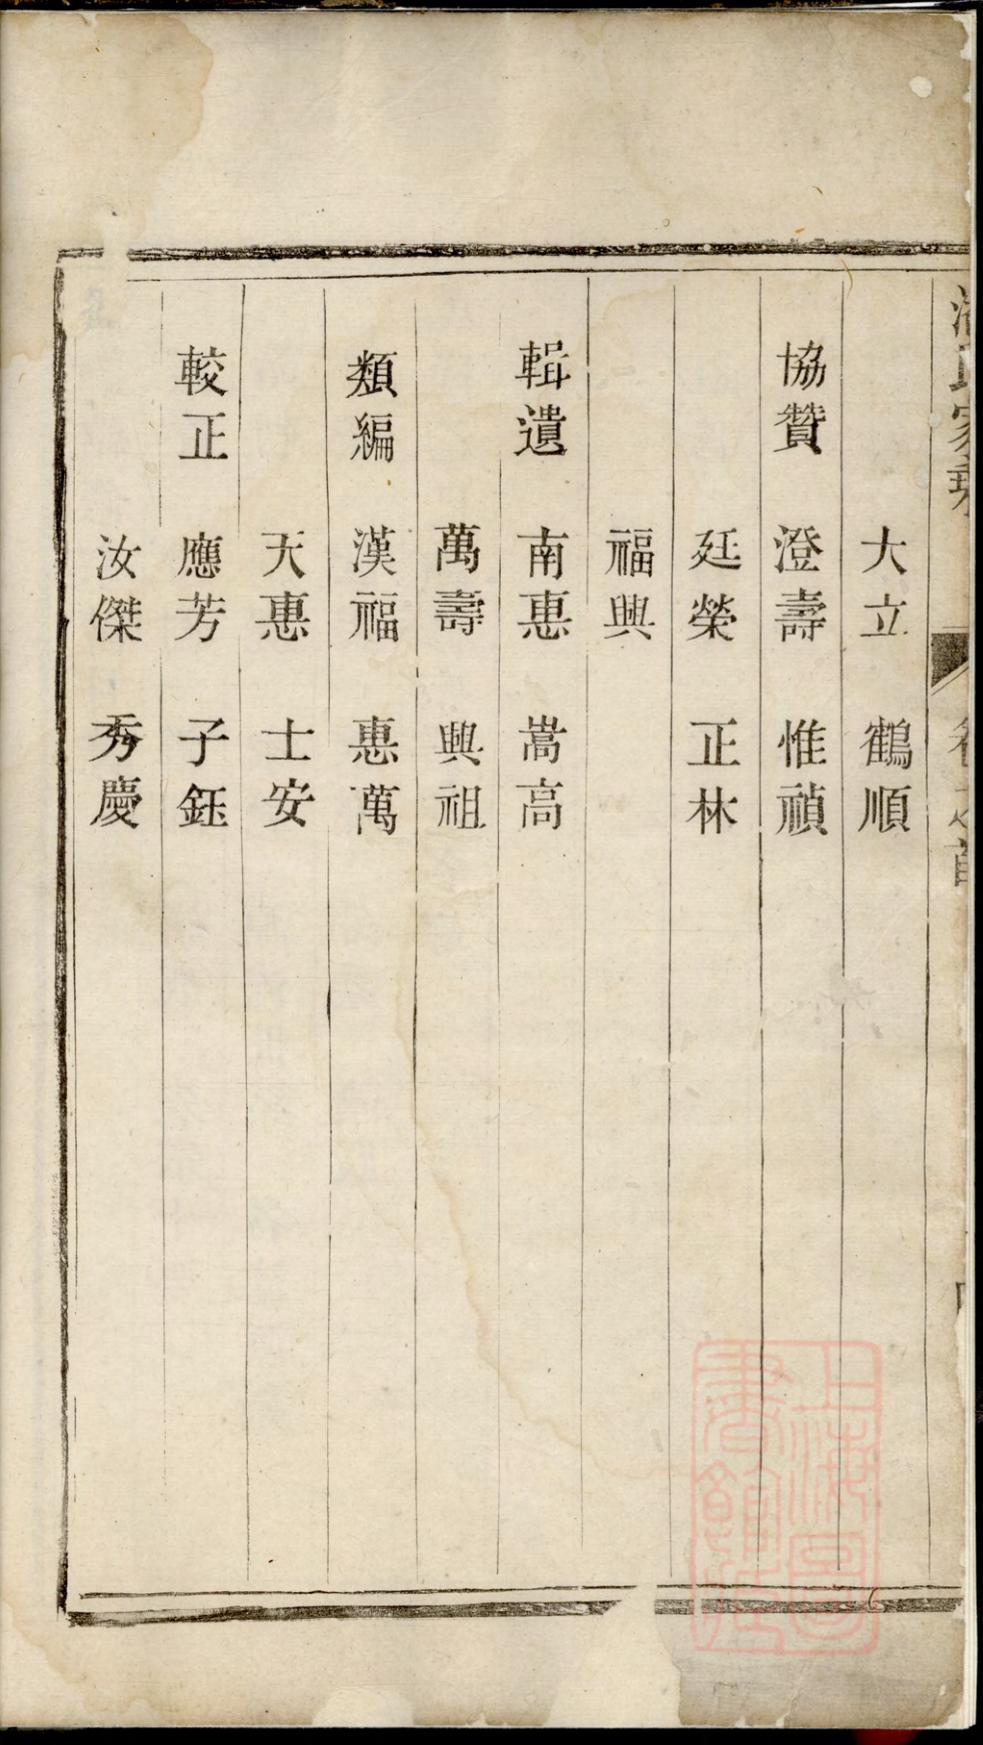 氏家乘
卷之首
大立 鶴順
協贊 澄壽 惟禎
廷榮 正林
福興
輯遺 南惠 嵩高
萬壽 興祖
類編 漢福 惠萬
天惠 士安
較正 應芳 子鈺
汝傑 秀慶
上海圖書館藏